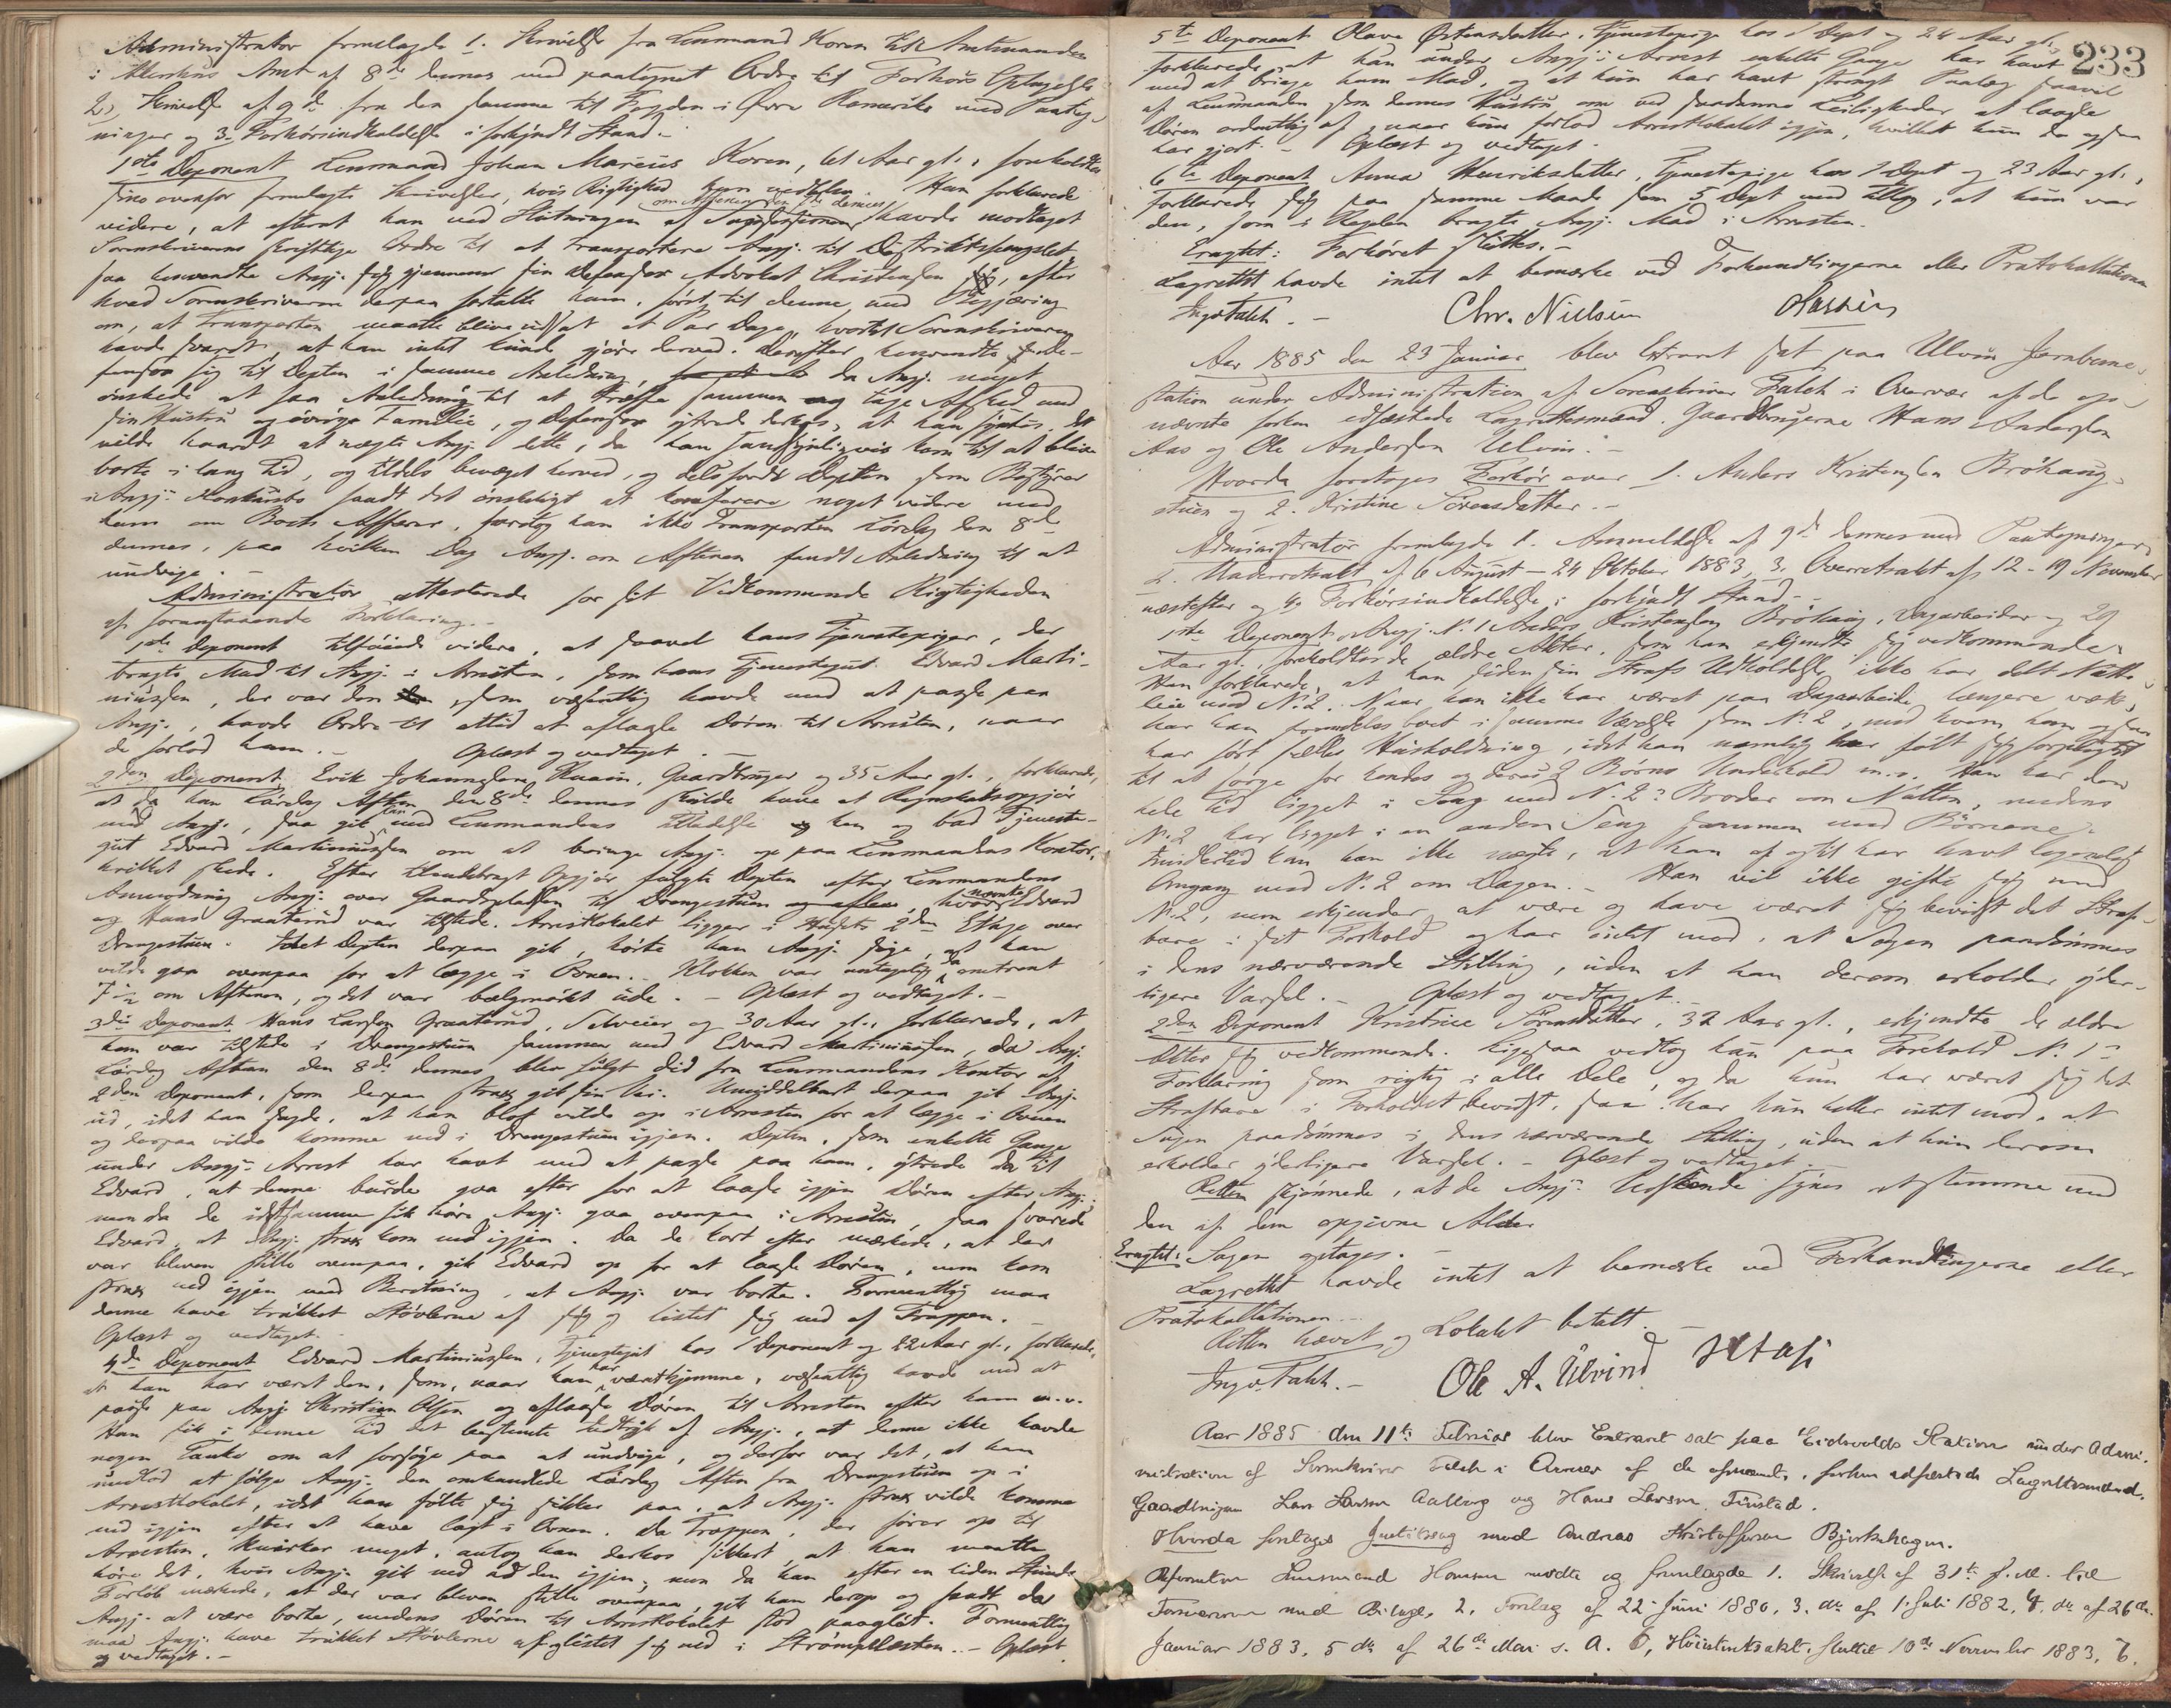 Administrator fremlagde 1. Skrivelse fra Lensmand Koren til Amtmanden
i Akershus Amt af 8de dennes med paategnet Ordre til Forhørs Optagelse
2, Skrivelse af 9de fra den samme til Fogden i Øvre Romerike med Paateg-
ninger og 3. Forhørsindkaldelse i forkyndt Stand.-
1ste Deponent Lensmand Johan Marcus Koren, 61 Aar gl., foreholdtes
sine ovenfor fremlagte Skrivelser, hvis Rigtighed han vedtog. Han forklarede
om Aftenen den 7de dennes
videre, at efterat han ved Slutningen af havde modtaget
Sorenskriverens skriftlige Ordre til at transportere Angj. til Distriktsfængslet
saa henvendte Angj. sig gjennem sin Defensor Advokat Christensen, efter
hvad Sorenskriveren derpaa fortalte ham, først til denne med Begjæring
om, at Transporten maatte blive udsat et Par Dage, hvortil Sorenskriveren
havde svaret, at han intet kunde gjøre derved. Derefter henvendte De-
fensor sig til Depten i samme Anledning, da Angj. meget
ønskede at faa Anledning til at træffe sammen og tage Afsked med
sin Hustru og øvrige Familie, og Defensor ytrede derhos, at han syntes det
vilde haardt at nægte Angj. dette, da han sandsynligvis kom til at blive
borte i lang Tid, og tildels bevæget herved, og dels fandt Depten som Bestyrer
i Angj.s Konkursbo fandt det ønskeligt at konferere noget videre med
ham om Boets Affærer, foretog han ikke Transporten Lørdag den 8de
dennes, paa hvilken Dag Angj. om Aftenen fandt Anledning til at
undvige.-
Administrator attesterede for sit Vedkommende Rigtigheden
af foranstaaende Forklaring.-
1ste Deponent tilføiede videre, at saavel hans Tjenestepiger, der
bragte Mad til Angj. i Arresten, som hans Tjenestegut Edvard Marti-
niussen, der var den, som væsentlig havde med at passe paa
Angj., havde Ordre til altid at aflaase Døren til Arresten, naar
de forlod ham.- Oplæst og vedtaget.-
2den Deponent Erik Johannesen Gaardbruger og 35 Aar gl., forklarede,
at da han Lørdag Aften den 8de dennes skulde have et Regnskabsopgjør
med Angj., saa gik han med Lensmandens Tilladelse hen og bad Tjeneste-
gut Edvard Martiniussen om at bringe Angj. op paa Lensmandens Kontor,
hvilket skede. Efter tilendebragt Opgjør fulgte Depten efter Lensmandens
Anmodning Angj. over Gaardspladsen til Drengestuen, hvor nævnte Edvard
og Hans Graaterud var tilstede. Arrestlokalet ligger i Husets 2den Etage over
Drengestuen. Idet Depten derpaa gik, hørte han Angj. sige, at han
vilde gaa ovenpaa for at lægge i Ovnen. Klokken var antagelig da omtrent
7½ om Aftenen, og det var bælgmørkt ude.- Oplæst og vedtaget.-
3die Deponent Hans Larsen Graaterud, Selveier og 30 Aar gl., forklarede, at
han var tilstede i Drengestuen sammen med Edvard Martiniussen, da Angj.
Lørdag Aften den 8de dennes blev fulgt did fra Lensmandens Kontor af
2den Deponent, som derpaa strax gik sin Vei. Umiddelbart derpaa gik Angj.
ud, idet han sagde, at han blot vilde op i Arresten for at lægge i Ovnen
og derpaa vilde komme ned i Drengestuen igjen. Depten, som enkelte Gange
under Angj.s Arrest har havt med at passe paa ham, ytrede da til
Edvard, at denne burde gaa efter for at laase igjen Døren efter Angj.;
men da de idetsamme fik høre Angj. gaa ovenpaa i Arresten, saa svarede
Edvard, at Angj. strax kom ned igjen. Da de kort efter mærkede, at der
var bleven stille ovenpaa, gik Edvard op for at laase Døren, men kom
strax ned igjen med Beretning, at Angj. var borte. Formentlig maa
denne have trukket Støvlerne af sig og listet sig ned af Trappen.-
Oplæst og vedtaget.-
4de Deponent Edvard Martiniussen, Tjenestegut hos 1 Deponent og 22 Aar gl., forklarede,
at han har været den, som, naar han har været hjemme, væsentlig havde med at
passe paa Angj. Christian Olsen og aflaase Døren til Arresten efter ham m.v.
Han fik i denne Tid det bestemte Indtryk af Angj., at denne ikke havde
nogen Tanke om at forsøge paa at undvige, og derfor var det, at han
undlod at følge Angj. den omhandlede Lørdag Aften fra Drengestuen op i
Arrestlokalet, idet han følte sig sikker paa, at Angj. strax vilde komme
ned igjen efter at have lagt i Ovnen. Da Trappen, der fører op til
Arresten, knirker meget, antog han derhos sikkert, at han maatte
høre det, hvis Angj. gik ned ad den igjen; men da han efter en liden Stunds
Forløb mærkede, at der var bleven stille ovenpaa, gik han derop og fandt da
Angj. at være borte, medens Døren til Arrestlokalet stod paagløt. Formentlig
maa Angj. have trukket Støvlerne af og listet sig ned i Strømpelæsten.- Oplæst
og vedtaget.-
233
5te Deponent Olava Østensdatter, Tjenestepige hos 1 Dept og 24 Aar gl.,
forklarede, at hun under Angj.s Arrest enkelte Gange har havt
med at bringe ham Mad, og at hun har havt strengt Paalæg saavel
af Lensmanden som dennes Hustru om ved saadanne Leiligheder at laase
Døren ordentlig af, naar hun forlod Arrestlokalet igjen, hvilket hun da ogsaa
har gjort.- Oplæst og vedtaget.-
6te Deponent Anna Henriksdatter, Tjenestepige hos 1 Dept og 23 Aar gl.,
forklarede sig paa samme Maade som 5 Dept med Tillæg, at hun var
den, som i Regelen bragte Angj. Mad i Arresten.
Eragtet: Forhøret sluttes.-
Lagrettet havde intet at bemærke ved Forhandlingerne eller Protokollationen
Ingv. Falch.- Chr. Nielsen
Aar 1885 den 23 Januar blev Extraret sat paa Ulvin Jernbane-
station under Administration af Sorenskriver Falch i Overvær af de op-
nævnte forhen edfæstede Lagrettesmænd, Gaardbrugerne Hans Andersen
Aas og Ole Andersen Ulvin.-
Hvorda foretoges Forhør over 1. Anders Kristensen Brøhaug-
stuen og 2. Kristine Sørensdatter.-
Administrator fremlagde 1. Anmeldelse af 9de dennes med Paategninger,
2. Underretsakt af 6 August - 24 Oktober 1883, 3. Overretsakt af 12-19 November
næstefter og 4. Forhørsindkaldelse i forkyndt Stand.-
1ste Deponent, Angj. No. 1 Anders Kristensen Brøhaug, Dagarbeider og 29
Aar gl., foreholdtes de ældre Akter, som han erkjendte sig vedkommende.
Han forklarede, at han siden sin Strafs Udholdelse ikke har delt Natte-
leie med No. 2. Naar han ikke har været paa Dagsarbeide længere væk,
har han fremdeles boet i samme Værelse som No. 2, med hvem han ogsaa
har ført fælles Husholdning, idet han nemlig har følt sig forpligtet
til at sørge for hendes og deres 2 Børns Underhold m.v. Han har den
hele Tid ligget i Seng med No. 2s Broder om Natten, medens
No. 2 har ligget i en anden Seng sammen med Børnene.
Imidlertid kan han ikke nægte, at han af og til har havt legemlig
Omgang med No. 2 om Dagen.- Han vil ikke gifte sig med
No. 2, men erkjender at være og have været sig bevidst det Straf-
bare i sit Forhold og har intet mod, at Sagen paadømmes
i dens nærværende Stilling, uden at han derom erholder yder-
ligere Varsel.- Oplæst og vedtaget.-
2den Deponent Kristine Sørensdatter, 32 Aar gl., erkjendte de ældre
Akter sig vedkommende. Ligesaa vedtog hun paa Forehold No. 1s
Forklaring som rigtig i alle Dele, og da hun har været sig det
Strafbare i Forholdet bevidst, saa har hun heller intet mod, at
Sagen paadømmes i dens nærværende Stilling, uden at hun derom
erholder yderligere Varsel.- Oplæst og vedtaget.-
Retten skjønnede, at de Angj.s Udseende synes at stemme med
den af dem opgivne Alder
Eragtet: Sagen optages.-
Lagrettet havde intet at bemærke ved Forhandlingerne eller
Protokollationen.-
Retten hævet og Lokalet betalt.-
Ingv. Falch.- Ole A. Ulvind H A Aas
Aar 1885 den 11te Februar blev Extraret sat paa Eidsvolds Station under Admi-
nistration af Sorenskriver Falch i Overvær af de opnævnte, forhen edfæstede Lagrettesmænd,
Gaardbrugerne Lars Larsen Aalborg og Hans Larsen Finstad.
Hvorda foretages Justitssag mod Andreas Kristoffersen Bjørkehagen.
Aktor Lensmand mødte og fremlagde 1. Skrivelse af 31te f.M. til
med Bilage, 2, Forelæg af 22 Juni 1880, 3. do af 1 Juli 1882, 4, do af 26de
Januar 1883, 5 do af 26de Mai s. A. 6, Høiesteretsakt, sluttet 10de November 1883, 7.